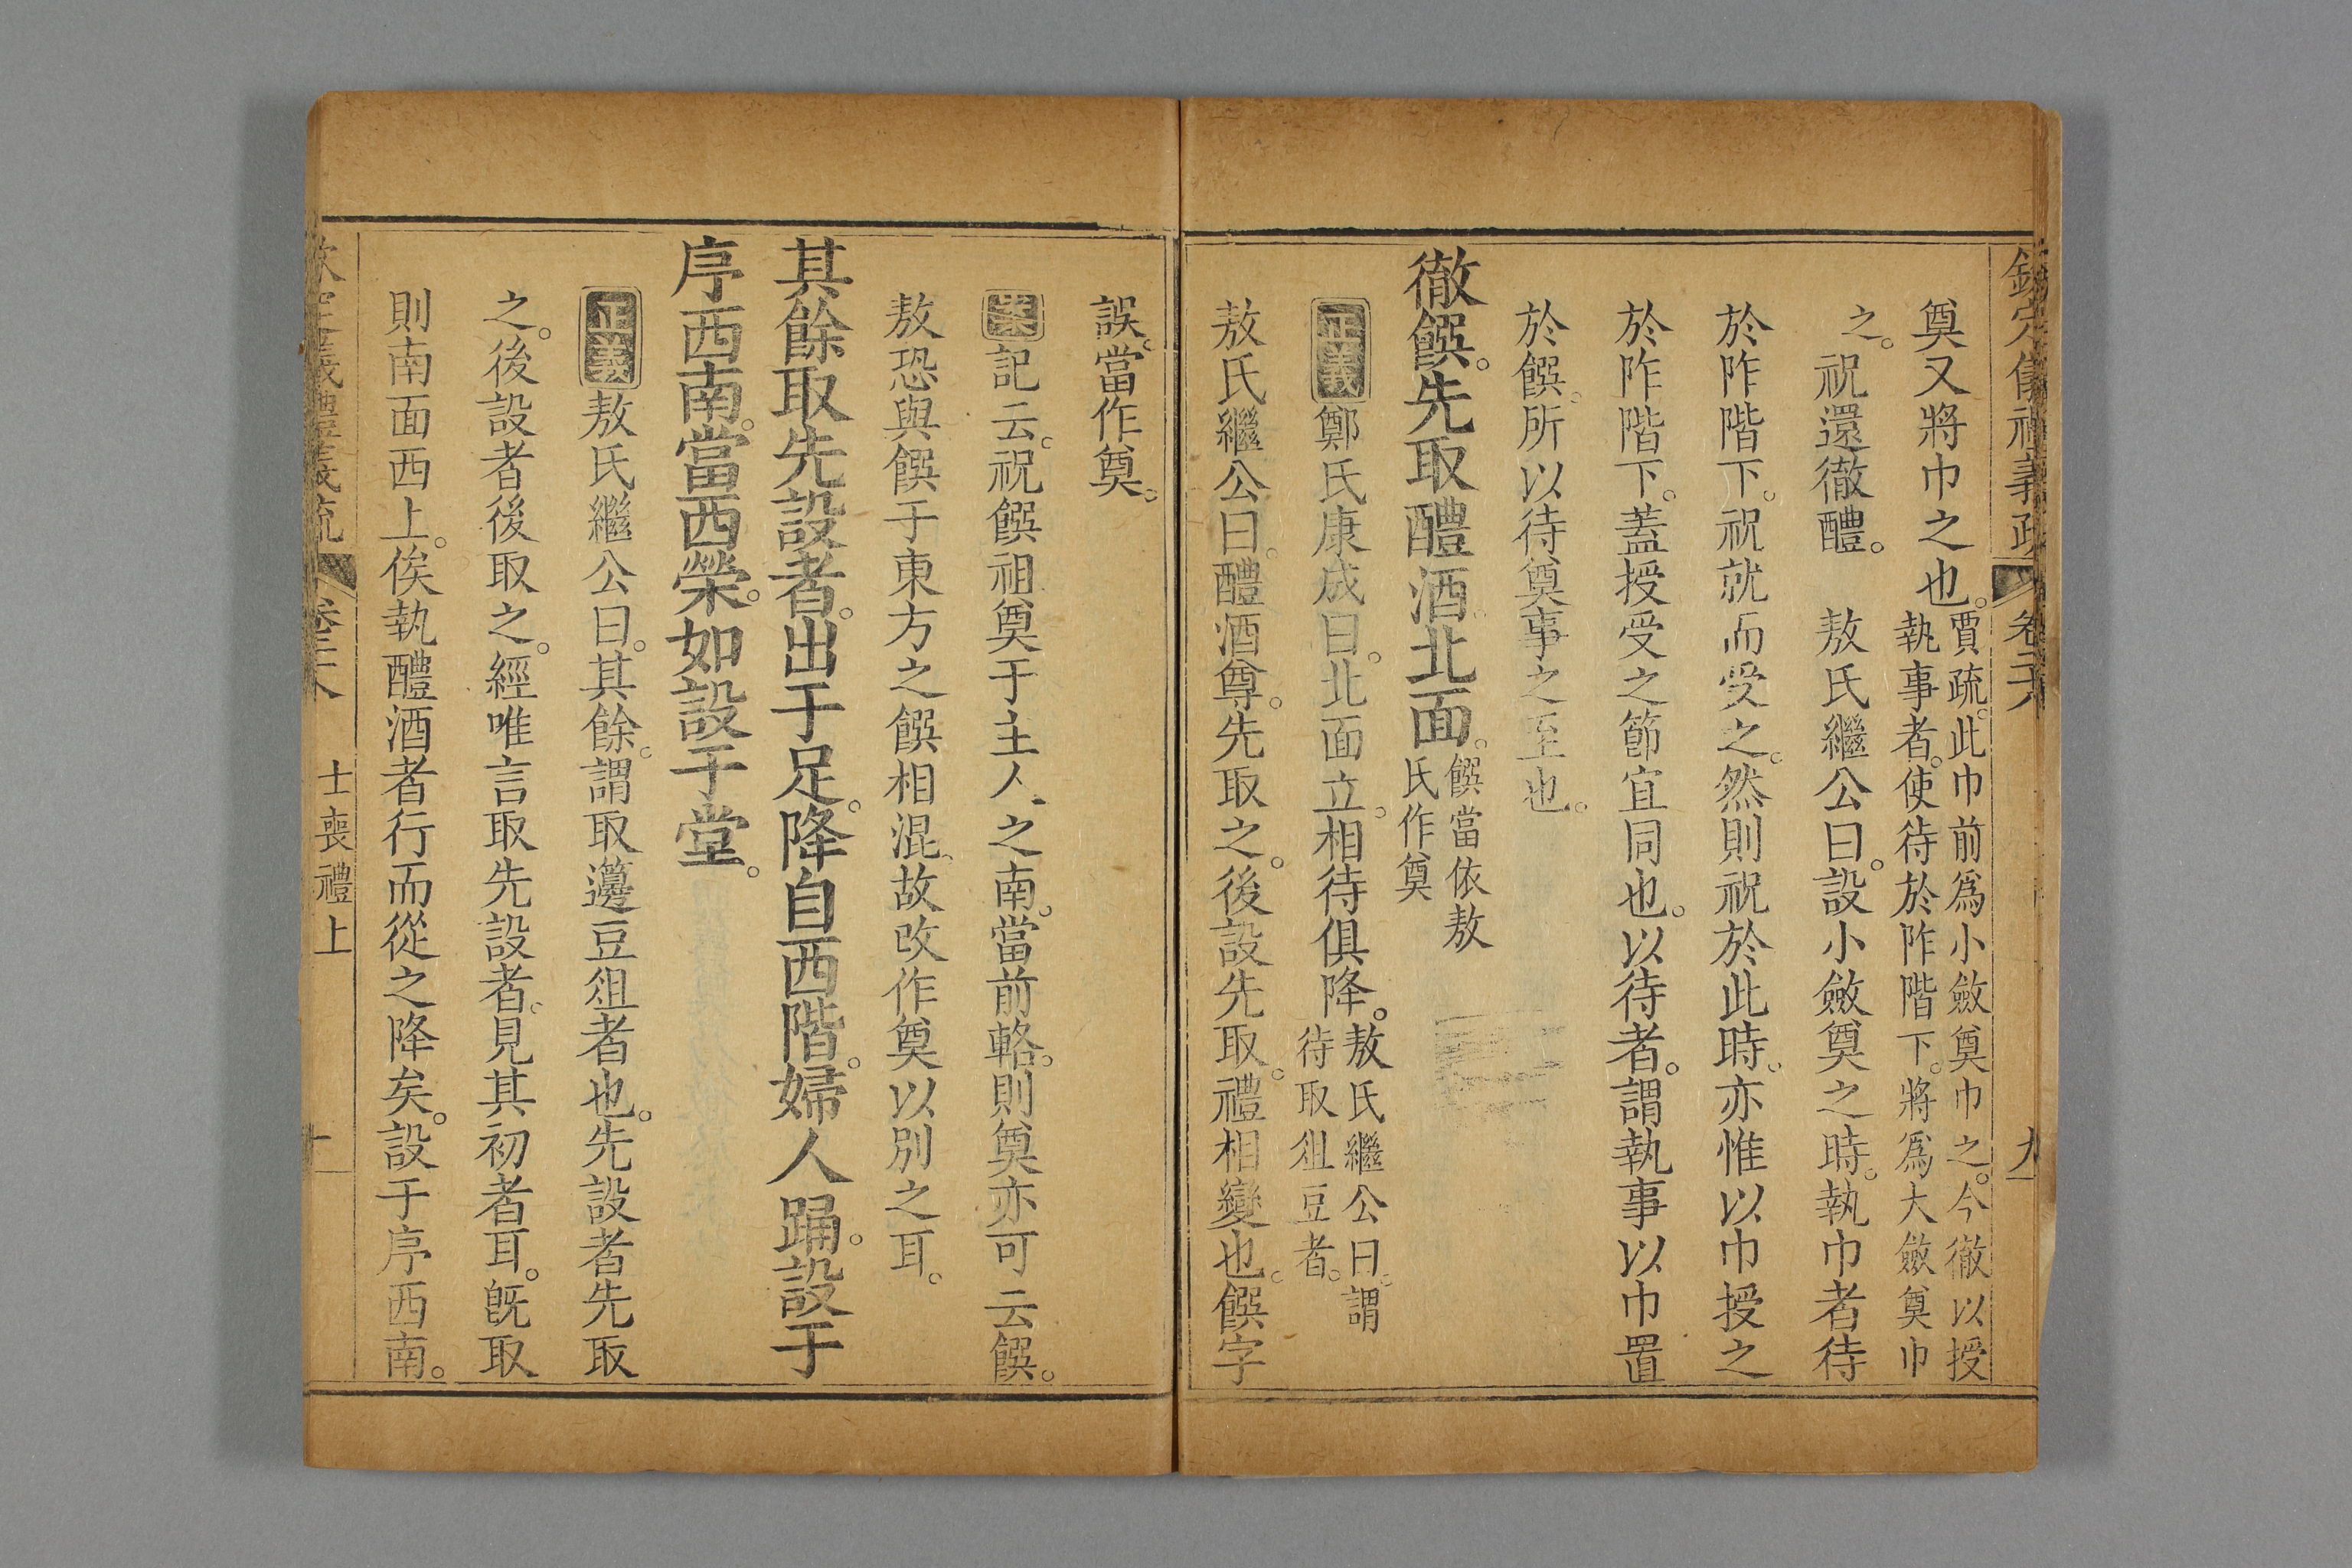 欽定儀禮義疏 卷二十八 九
奠又將巾之也。賈疏。此巾前爲小斂奠巾之。今徹以授
執事者。使待於阼階下。將爲大斂奠巾
之。祝還徹醴。 敖氏繼公曰。設小斂奠之時。執巾者待
於阼階下。祝就而受之。然則祝於此時。亦惟以巾授之
於阼階下。蓋授受之節宜同也。以待者。謂執事以巾置
於饌。所以待奠事之至也。
徹饌。先取醴酒。北面。饌當依敖
氏作奠
正義 鄭氏康成曰。北面立。相待俱降。敖氏繼公曰。謂
待取俎豆者。
敖氏繼公曰。醴酒尊。先取之。後設先取。禮相變也。饌字
誤。當作奠。
案 記云。祝饌祖奠于主人之南。當前輅。則奠亦可云饌。
敖恐與饌于東方之饌相混。故改作奠以別之耳。
其餘取先設者。出于足。降自西階。婦人踊。設于
序西南。當西榮。如設于堂。
正義 敖氏繼公曰。其餘。謂取籩豆俎者也。先設者先取
之。後設者後取之。經唯言取先設者。見其初者耳。旣取
則南面西上。俟執醴酒者行而從之降矣。設于序西南。
欽定儀禮義疏 卷二十八 士喪禮上 十